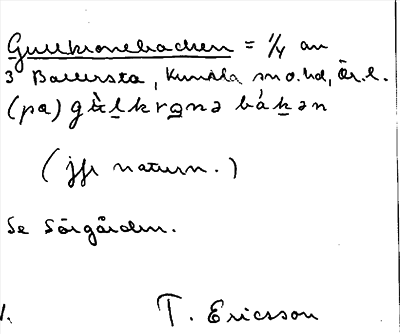 Gullkronebacken = 1/4 av
3 Ballersta, Kumla sn o. hd, Ör. l.
(pa) gu̇̀lkronə bákən
(jfr naturn.)
Se Sörgården.
T. Ericsson